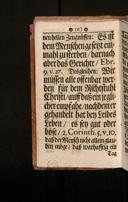 ( 6 )
nen hellen Zeugnüssen: Es ist
dem Menschen gesetzt ein-
mahl zusterben / darnach
aber das Gerichte / Ebr.
9. v. 27. Desgleichen: Wir
müssen alle offenbar wer-
den für dem Richstuhl
Christi / auf daß ein jegli-
cher empfahe / nachdem er
gehandelt hat bey Leibes
Leben / es sey gut oder
böse / 2. Corinth. 5, v. 10.
daß der Mensch nicht allein glau-
ben müge / daß warhafftig ein
Tag